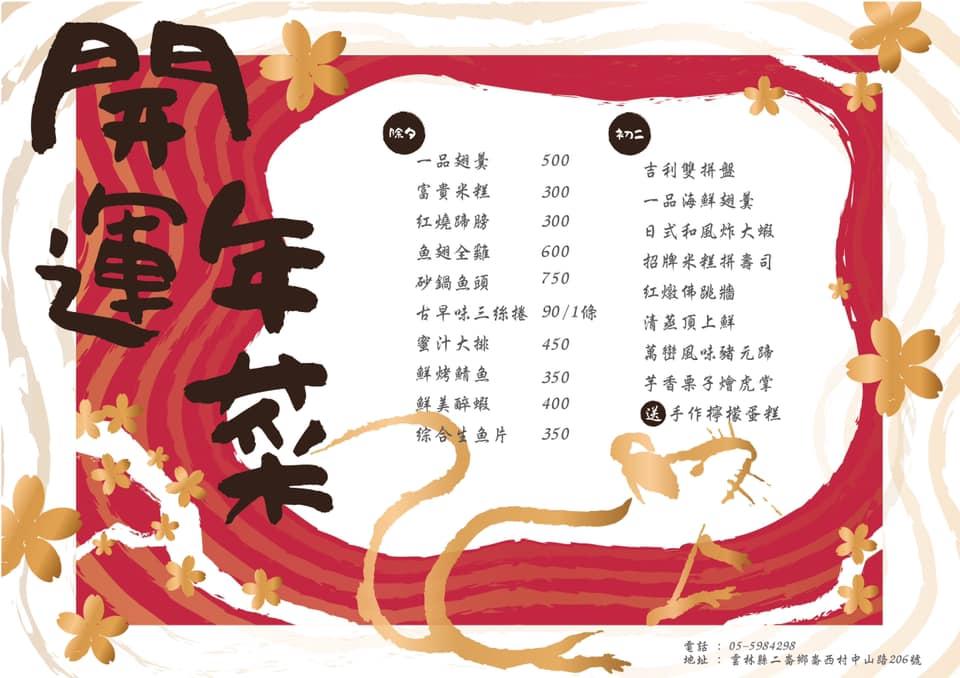 開運
年菜
除夕
一品翅羹 500
富貴米糕 300
紅燒蹄膀 300
魚翅全雞 600
砂鍋魚頭 750
古早味三絲捲 90/1條
蜜汁大排 450
鮮烤鯖魚 350
鮮美醉蝦 400
綜合生魚片 350
初二
吉利雙拼盤
一品海鮮翅羹
日式和風炸大蝦
招牌米糕拼壽司
紅燉佛跳牆
清蒸頂上鮮
萬巒風味豬元蹄
芋香栗子燴虎掌
送 手作檸檬蛋糕
電話 : 05-5984298
地址 : 雲林縣二崙鄉崙西村中山路206號